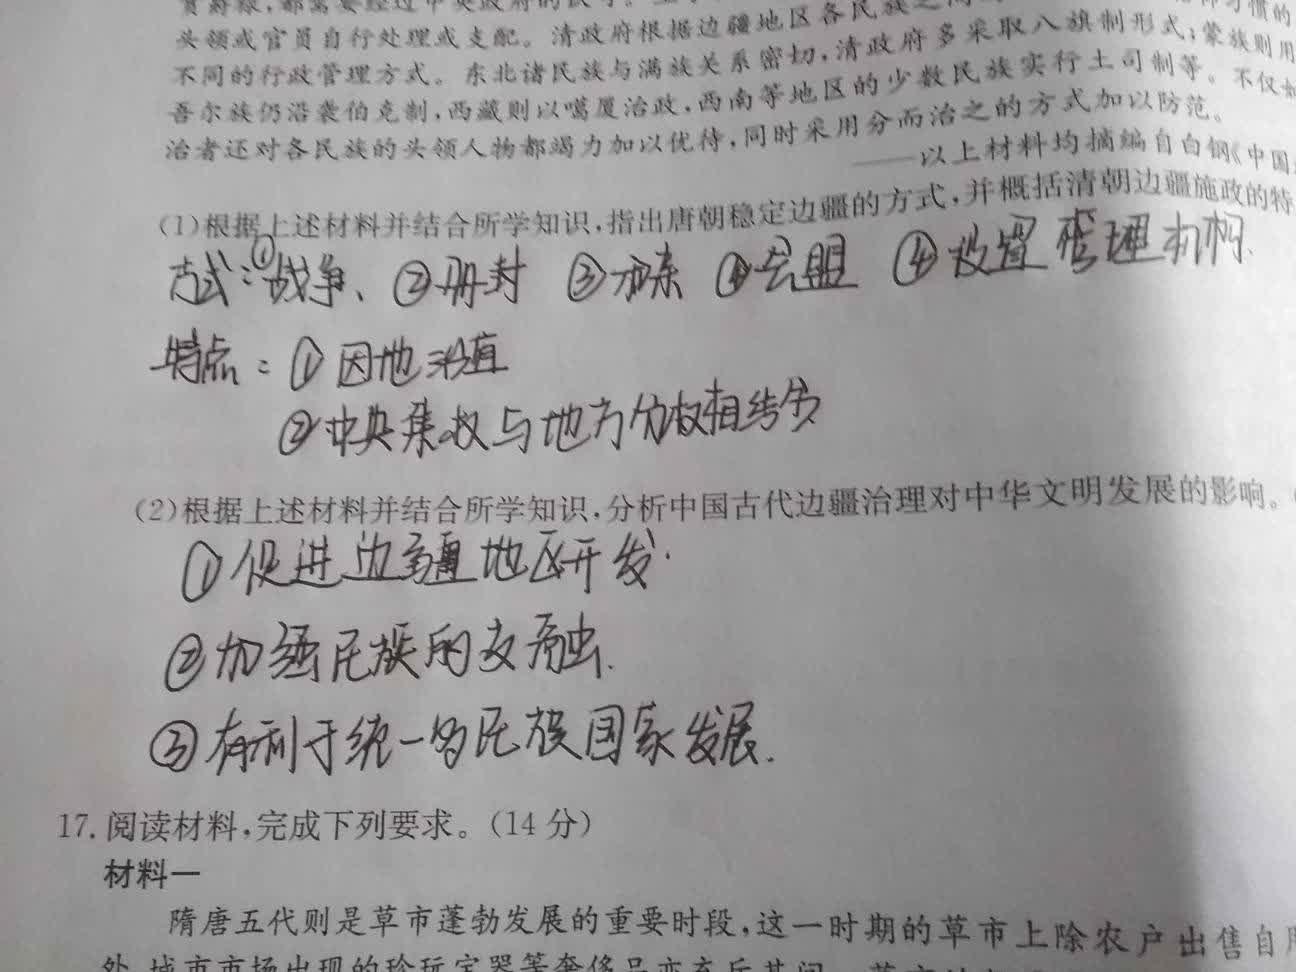 头领或官员自行处理或支配。清政府根据边疆地区各民族之间
不同的行政管理方式。东北诸民族与满族关系密切,清政府多采取八旗制形式;蒙族则用
吾尔族仍沿袭伯克制,西藏则以噶厦治政,西南等地区的少数民族实行土司制等。不仅如
治者还对各民族的头领人物都竭力加以优待,同时采用分而治之的方式加以防范。
——以上材料均摘编自白钢《中国
(1)根据上述材料并结合所学知识,指出唐朝稳定边疆的方式,并概括清朝边疆施政的特
方式:①战争、②册封 ③和亲 ④会盟 ④设置管理机构.
特点:①因地制宜
②中央集权与地方分权相结合
(2)根据上述材料并结合所学知识,分析中国古代边疆治理对中华文明发展的影响。(
①促进边疆地区开发.
②加强民族的交融.
③有利于统一多民族国家发展.
17.阅读材料,完成下列要求。(14分)
材料一
隋唐五代则是草市蓬勃发展的重要时段,这一时期的草市上除农户出售自
处,城市市场出现的珍玩宝器等奢侈品亦充斥其间